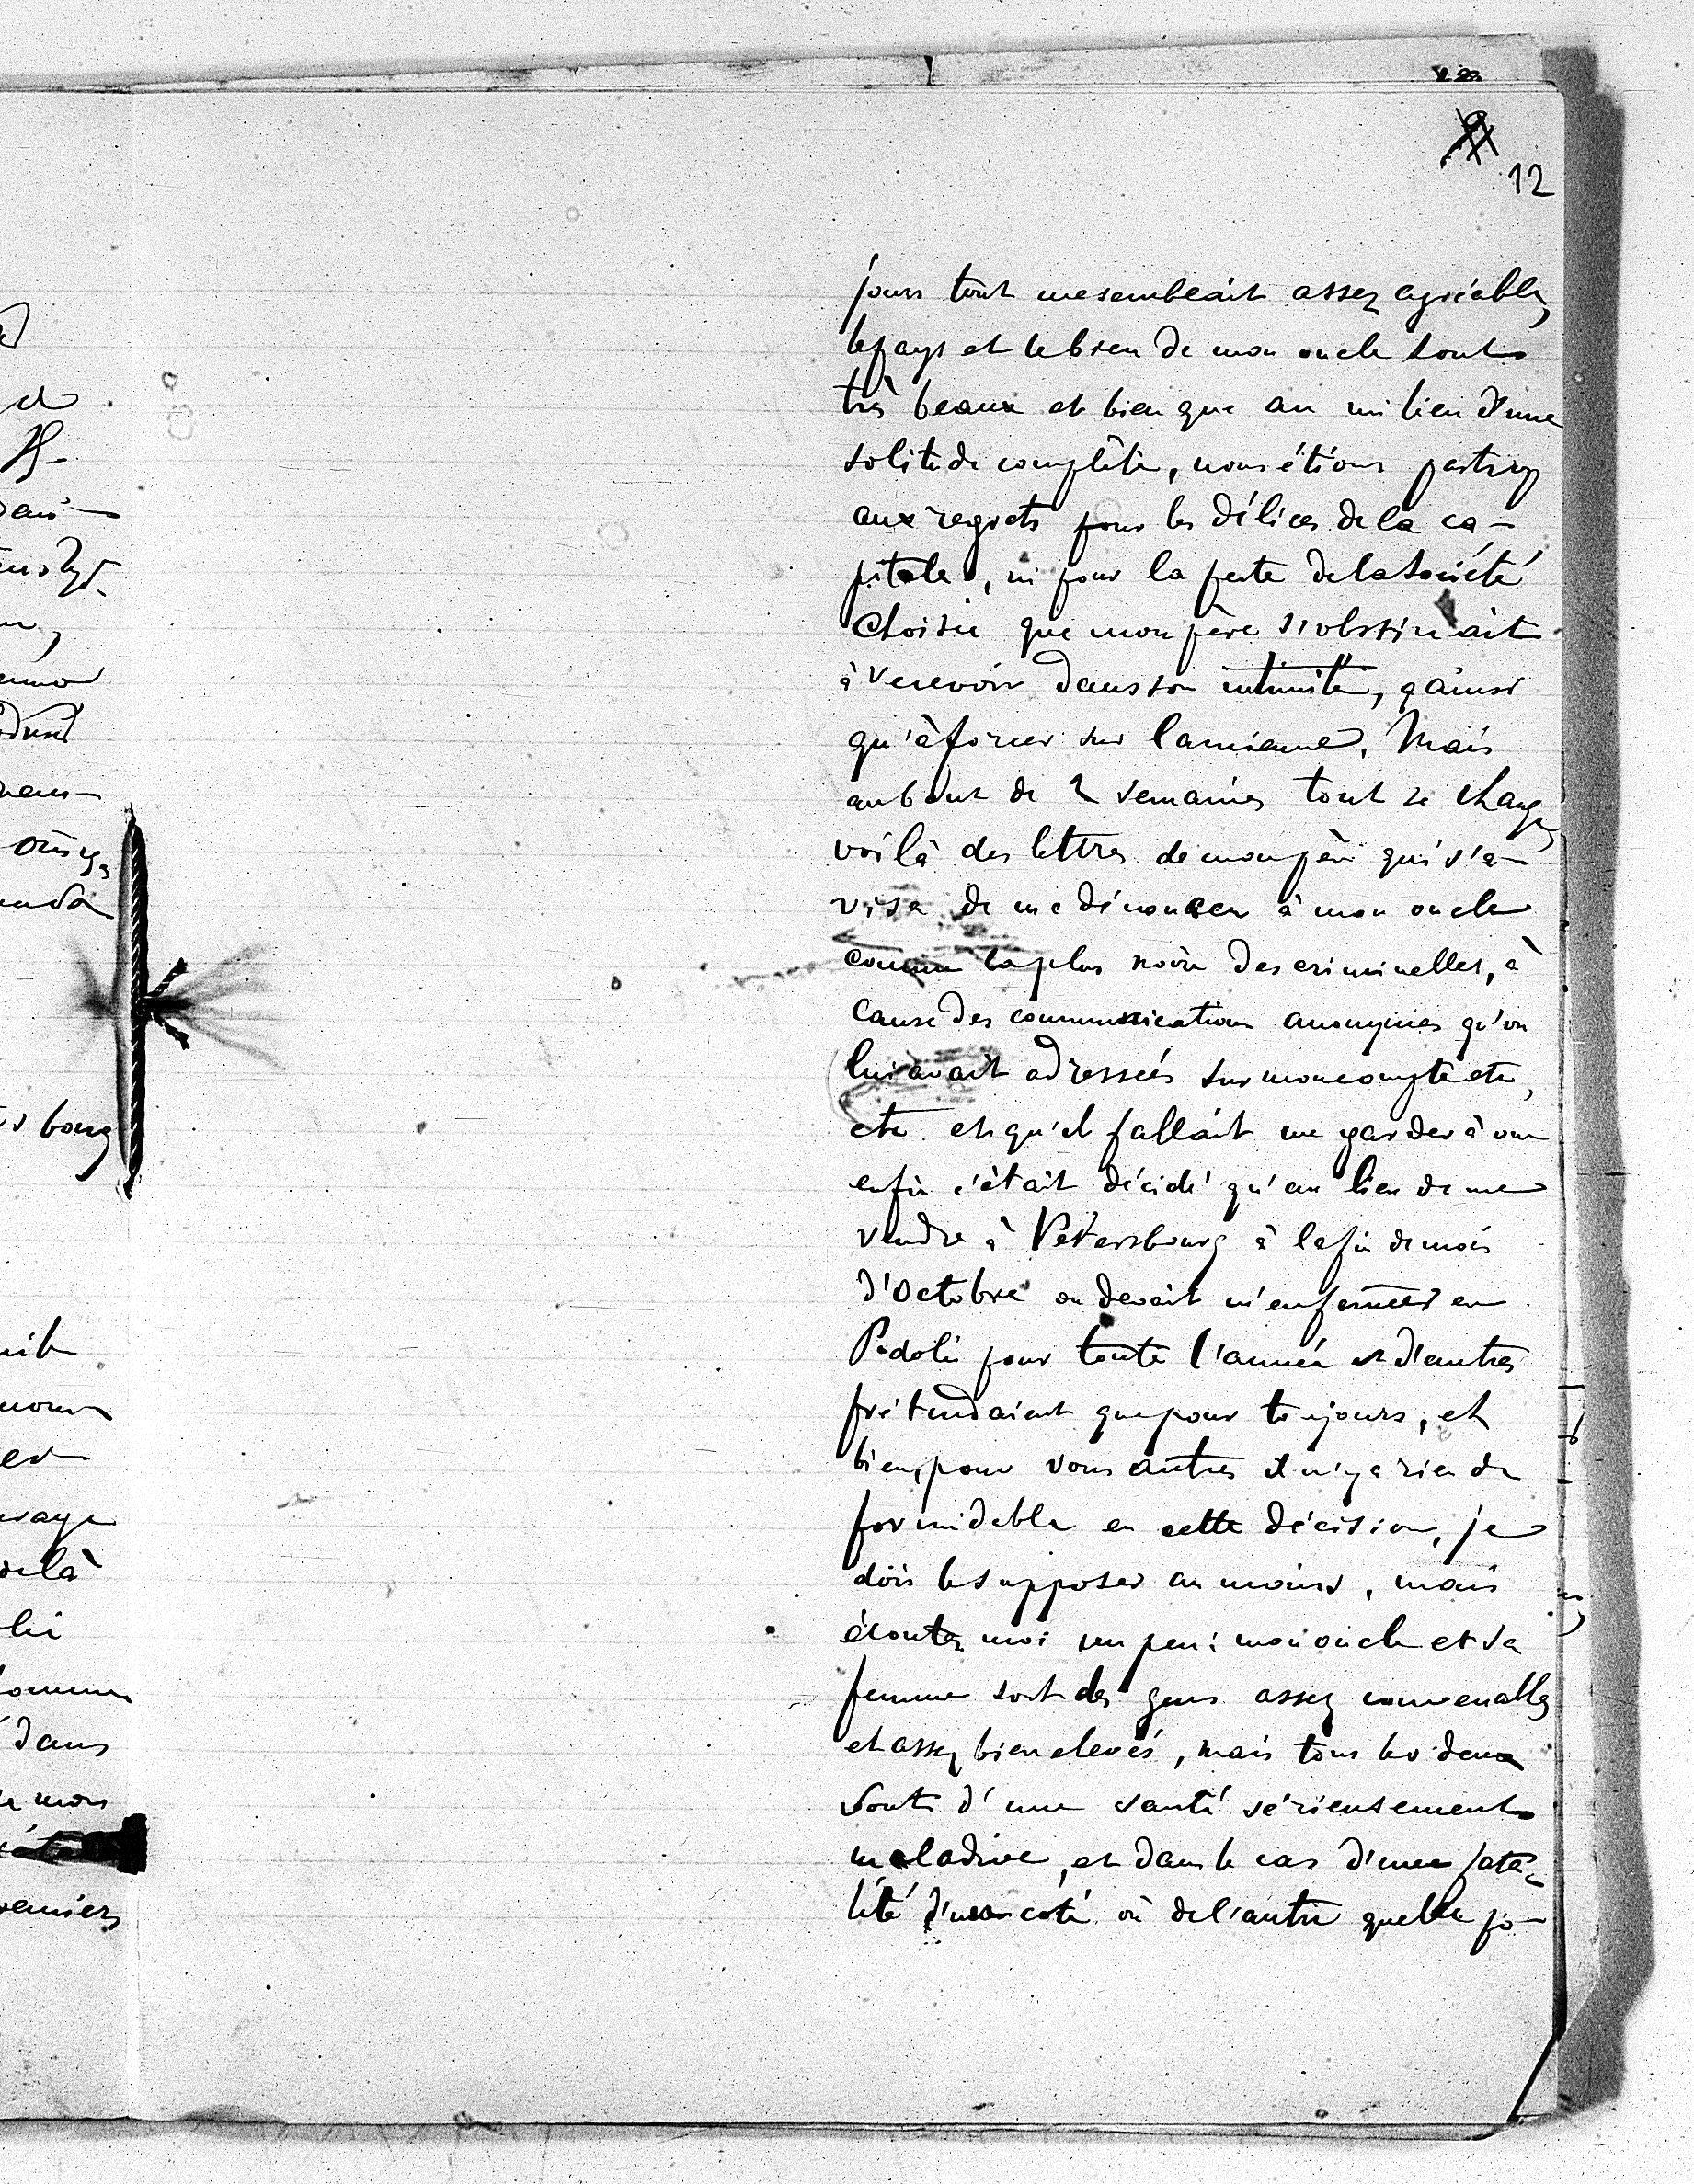 12
jours tout me semblait assez agréable,
le pays et le bien de mon oncle sont
très beaux et bien que au milieu d'une
solitude complète, nous étions pas trop
aux regrets pour les délices de la ca-
pitale, ni pour la perte de la société
choisie que mon père s'obstinait
à recevoir dans son intimité, qainsi
qu'à forcer sur la mienne. Mais
au bout de 2 semaines tout se change,
voilà des lettres de mon père qui s'a-
visa de me dénoncer à mon oncle
comme la plus noire des criminelles, à
cause des communications anonymes qu'on
lui avait adressées sur mon compte etc,
etc et qu'il fallait me garder à vue
enfin c'était décidé qu'au lieu de me
rendre à Petersbourg à la fin du mois
d'Octobre on devait m'enfermer en
Podolie pour toute l'année et d'autres
prétendaient que pour toujours, eh
bien, pour vous autres il n'y a rien de
formidable en cette décision, je
dois le supposer au moins, mais
écoutez moi un peu: mon oncle et sa
femme sont des gens assez convenables
et assez bien elevés, mais tous les deux
sont d'une santé sérieusement
maladive, et dans le cas d'une fata-
lité d'un coté où de l'autre quelle po-
ais
bourg
nous
delà
dans
mon